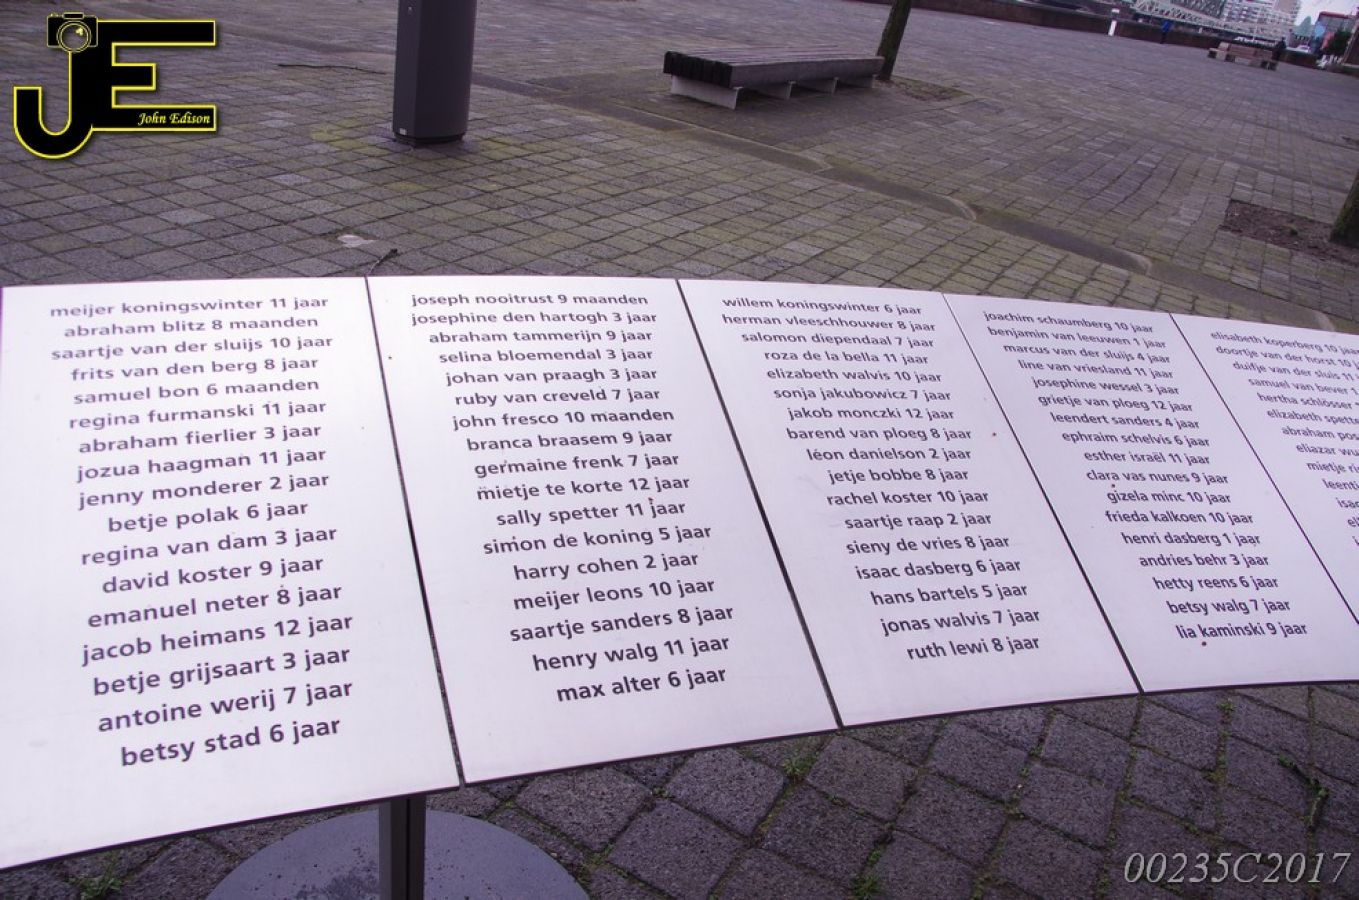 John Edison
meijer koningswinter 11 jaar
abraham blitz 8 maanden
saartje van der sluijs 10 jaar
frits van den berg 8 jaar
samuel bon 6 maanden
regina furmanski 11 jaar
abraham fierlier 3 jaar
jozua haagman 11 jaar
jenny monderer 2 jaar
betje polak 6 jaar
regina van dam 3 jaar
david koster 9 jaar
emanuel neter 8 jaar
jacob heimans 12 jaar
betje grijsaart 3 jaar
antoine werij 7 jaar
betsy stad 6 jaar
joseph nooitrust 9 maanden
josephine den hartogh 3 jaar
abraham tammerijn 9 jaar
selina bloemendal 3 jaar
johan van praagh 3 jaar
ruby van creveld 7 jaar
john fresco 10 maanden
branca braasem 9 jaar
germaine frenk 7 jaar
mietje te korte 12 jaar
sally spetter 11 jaar
simon de koning 5 jaar
harry cohen 2 jaar
meijer leons 10 jaar
saartje sanders 8 jaar
henry walg 11 jaar
max alter 6 jaar
willem koningswinter 6 jaar
herman vleeschhouwer 8 jaar
salomon diependaal 7 jaar
roza de la bella 11 jaar
elizabeth walvis 10 jaar
sonja jakubowicz 7 jaar
jakob monczki 12 jaar
barend van ploeg 8 jaar
léon danielson 2 jaar
jetje bobbe 8 jaar
rachel koster 10 jaar
saartje raap 2 jaar
sieny de vries 8 jaar
isaac dasberg 6 jaar
hans bartels 5 jaar
jonas walvis 7 jaar
ruth lewi 8 jaar
joachim schaumberg 10 jaar
benjamin van leeuwen 1 jaar
marcus van der sluijs 4 jaar
line van vriesland 11 jaar
josephine wessel 3 jaar
grietje van ploeg 12 jaar
leendert sanders 4 jaar
ephraim schelvis 6 jaar
esther israël 11 jaar
clara vas nunes 9 jaar
gizela minc 10 jaar
frieda kalkoen 10 jaar
henri dasberg 1 jaar
andries behr 3 jaar
hetty reens 6 jaar
betsy walg 7 jaar
lia kaminski 9 jaar
elisabeth koperberg 10 jaar
doortje van der horst 10
duifje van der sluis 11
samuel van bever 1
hertha schlösser
elizabeth
abraham
eliazar
mietje
00235C2017